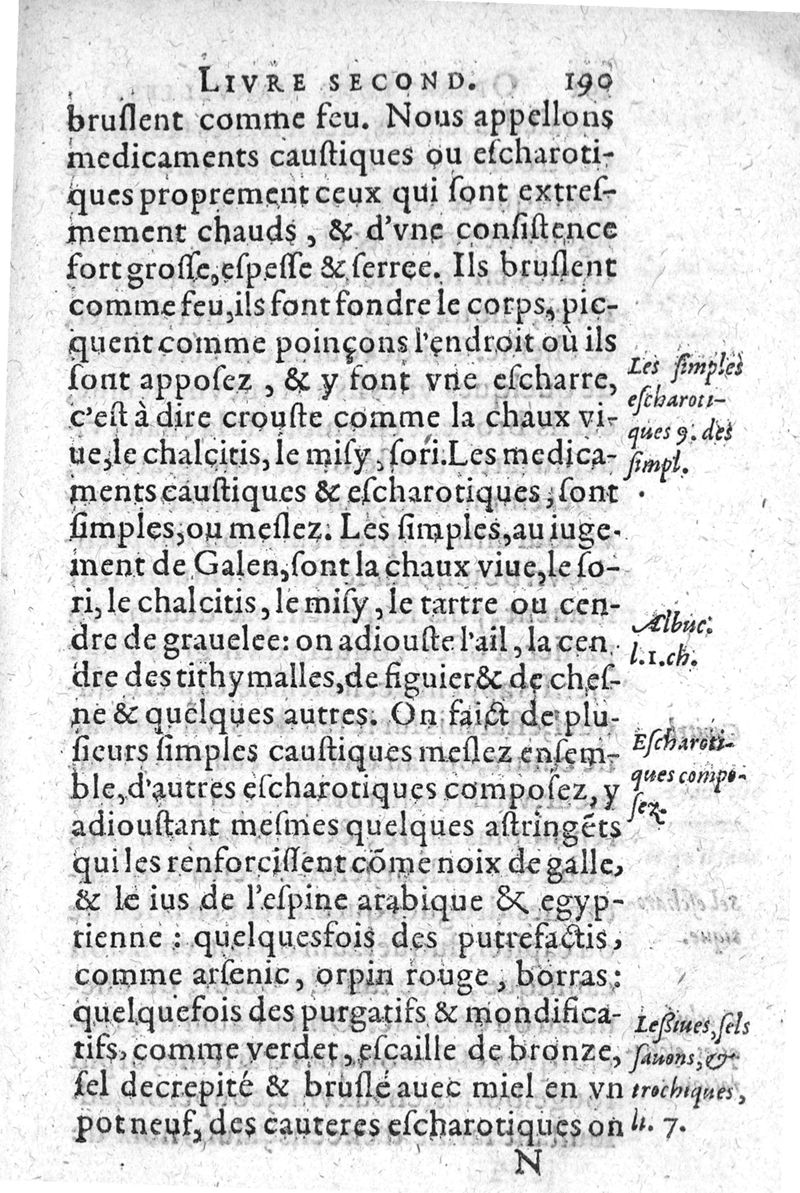 LIVRE SECOND. 190
bruſlent comme feu. Nous appellons
medicaments cauſtiques ou eſcharoti-
ques proprement ceux qui ſont extreſ-
mement chauds, & d'vne conſiſtence
fort groſſe, eſpeſſe & ſerree. Ils bruſlent
comme feu, ils font fondre le corps, pic-
quent comme poinçons l'endroit où ils
ſont appoſez, & y font vne eſcharre,
c'eſt à dire crouſte comme la chaux vi-
ue, le chalcitis, le miſy, ſori. Les medica-
ments cauſtiques & eſcharotiques, ſont
ſimples, ou meſlez. Les ſimples, au iuge-
ment de Galen, ſont la chaux viue, le ſo-
ri, le chalcitis, le miſy, le tartre ou cen-
dre de grauelee: on adiouſte l'ail, la cen
dre des tithymalles, de figuier & de cheſ-
ne & quelques autres. On faict de plu-
ſieurs ſimples cauſtiques meſlez enſem-
ble, d'autres eſcharotiques compoſez, y
adiouſtant meſmes quelques aſtringẽts
qui les renforciſſent cõme noix de galle,
& le ius de l'eſpine arabique & egyp-
tienne : quelquesfois des putrefactifs,
comme arſenic, orpin rouge, borras:
quelquefois des purgatifs & mondifica-
tifs, comme verdet, eſcaille de bronze,
ſel decrepité & bruſlé auec miel en vn
pot neuf, des cauteres eſcharotiques on
N
Les ſimples
eſcharoti-
ques 9. des
ſimpl.
Albuc.
l.1.ch.
Eſcharoti-
ques compo-
ſez.
Leßiues, ſels
ſauons, &
trochiques,
li. 7.